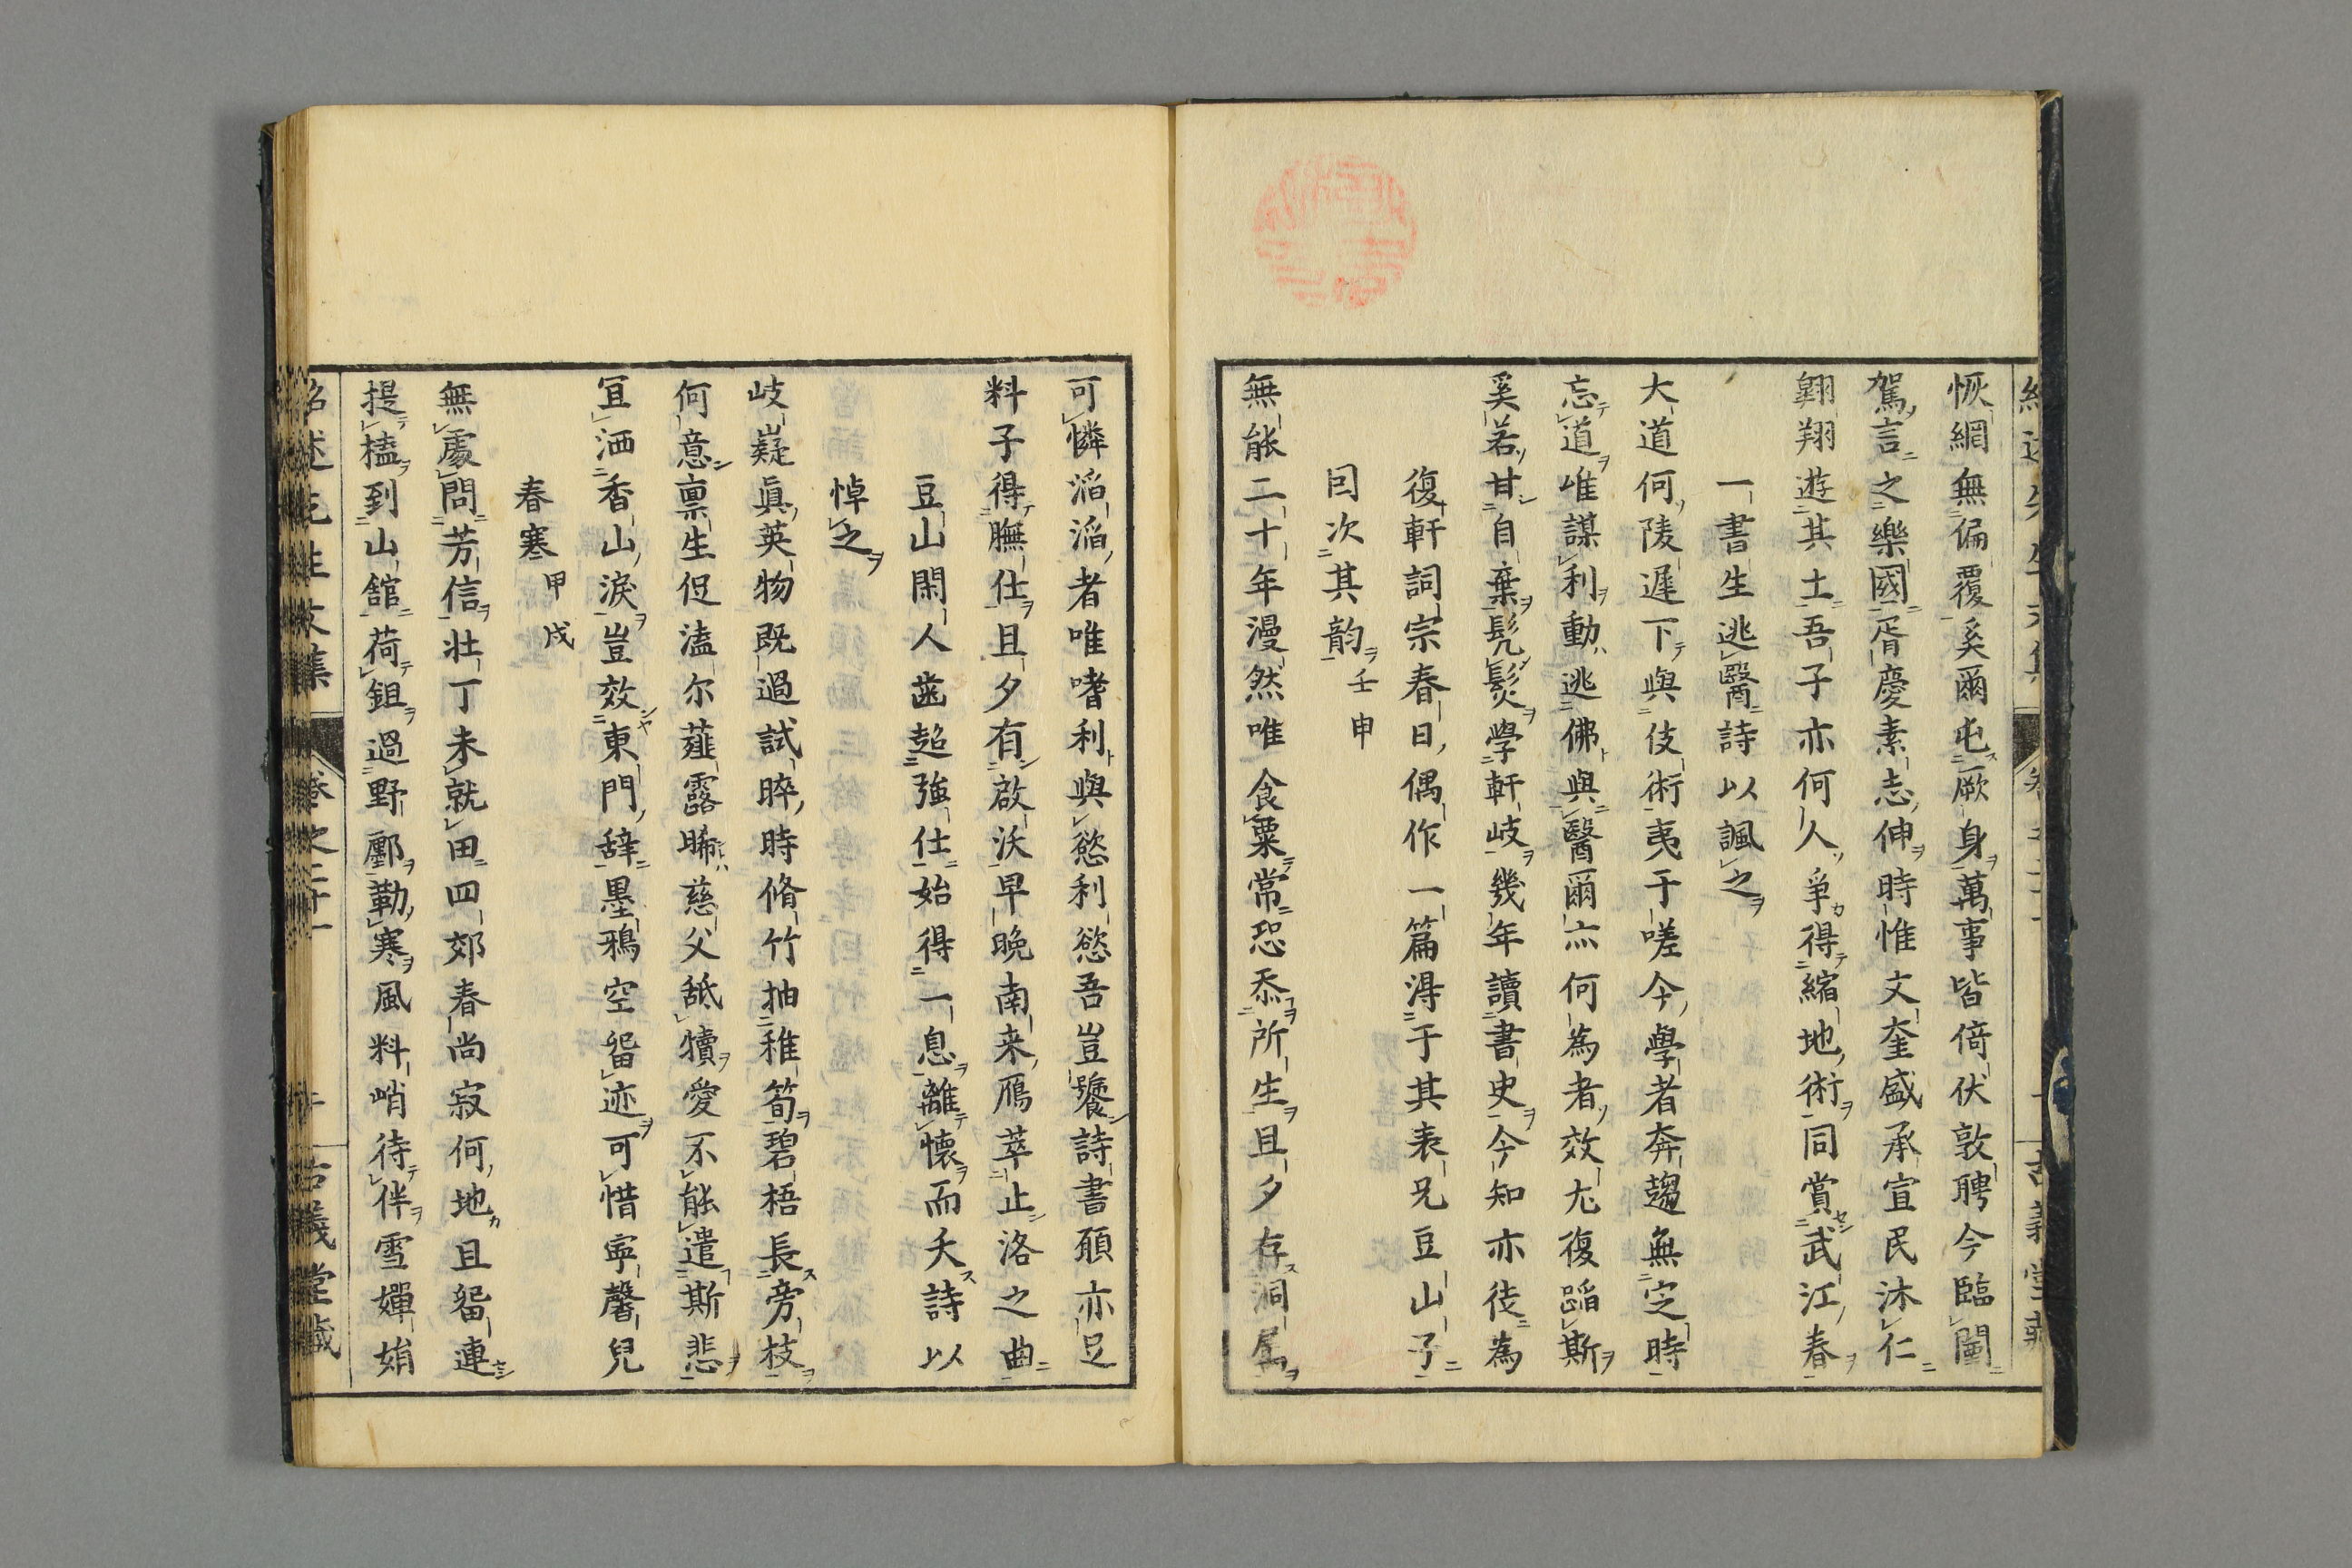 恢網無偏覆奚爾屯厥身萬事皆倚伏敦聘今臨闉
駕言之樂國胥慶素志伸時惟文奎盛承宣民沐仁
翺翔遊其土吾子亦何人爭得縮地術同賞武江春
一書生逃醫詩以諷之
大道何陵遲下與伎術夷于嗟今學者奔趨無定時
忘道唯謀利動逃佛與醫爾亦何為者效尤復蹈斯
奚若甘自棄髠髮學軒岐幾年讀書史今知亦徒為
復軒詞宗春日偶作一篇淂于其表兄豆山子
囙次其韵 壬申
無能二十年漫然唯食粟常恐忝所生且夕存洞屬
可憐滔滔者唯嗜利與慾利慾吾豈饕詩書願亦足
料子得膴仕且夕有啟沃早晩南来鴈萃止洛之曲
豆山閑人齒超強仕始得一息離懷而夭詩以
悼之
岐嶷眞英物既過試晬時脩竹抽稚筍碧梧長旁枝
何意禀生促溘尓薤露晞慈父舐犢愛不能遣斯悲
冝洒香山淚豈效東門辞墨鴉空畱迹可惜寧馨兒
春寒 甲戌
無處問芳信壮丁未就田四郊春尚寂何地且畱連
提榼到山館荷鉏過野鄽勒寒風料峭待伴雪嬋娟
紹述先生文集 卷之二十一 十 古義堂藏